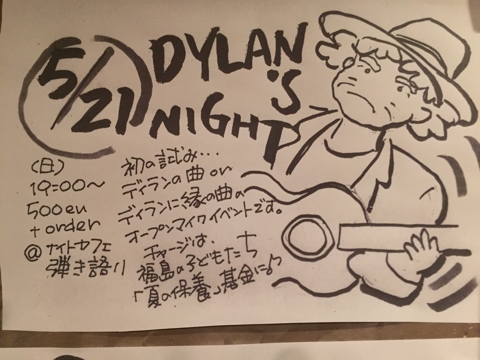 5/21
DYLAN'S
NIGHT
(日)
19:00〜
500en
+ order
@ナイトカフェ
弾き語り
初の試み…
ディランの曲or
ディランに縁の曲の
オープンマイクイベントです。
チャージは、
福島の子どもたち
「夏の保養」基金に